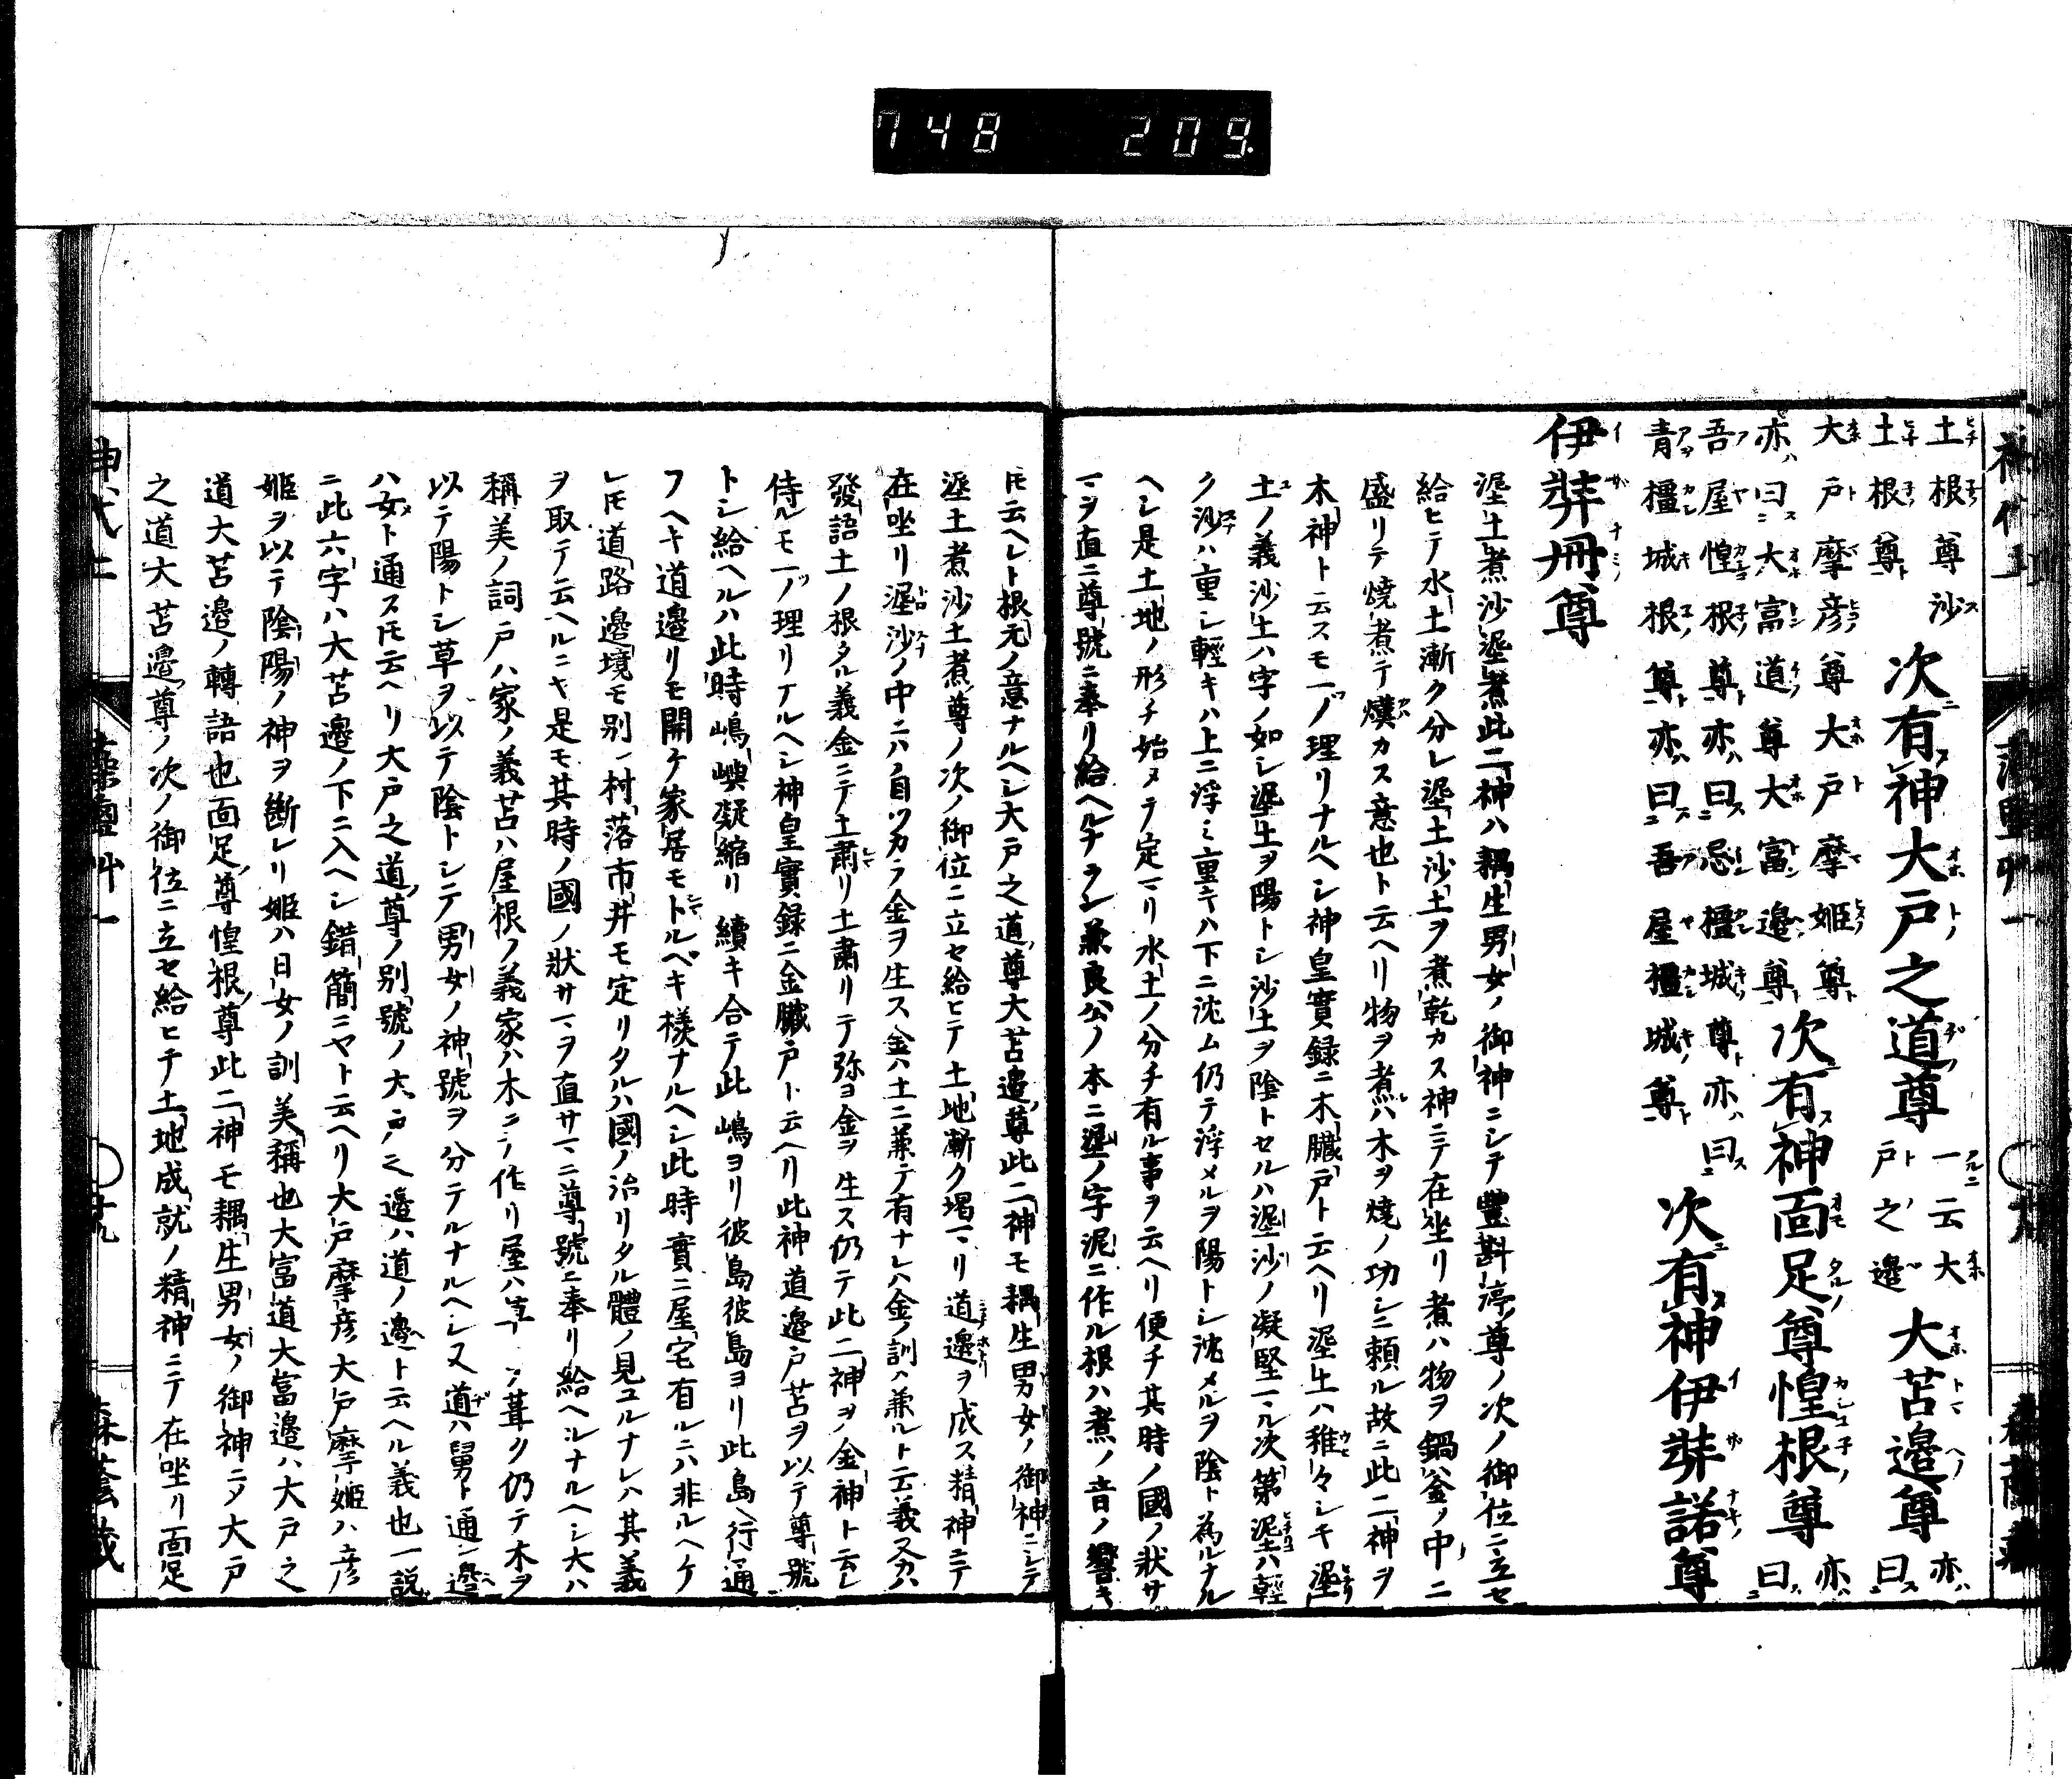 748 209.
土根尊沙
土根尊
次有神大戸之道尊
一云大
戸之邉
大苫邉尊
亦
曰
大戸摩彦尊大戸摩姫尊
亦曰大富道尊大富邉尊
次有神面足尊惶根尊
亦
曰
吾屋惶根尊亦曰忌橿城尊亦曰
青橿城根尊亦曰吾屋橿城尊
次有神伊弉諾尊
伊弉冊尊
埿土煮沙埿煮此二神ハ耦生男女ノ御神ニシテ豊斟渟尊ノ次ノ御位ニ立セ
給ヒテ水土漸ク分レ埿土沙土ヲ煮乾カス神ニテ在坐リ煮ハ物ヲ鍋釜ノ中ニ
盛リテ焼煮テ熯カス意也ト云ヘリ物ヲ煮ハ木ヲ焼ノ功シニ頼ル故ニ此二神ヲ
木神ト云スモ一ノ理リナルヘシ神皇實録ニ木臓戸ト云ヘリ埿土ハ稚々シキ埿
土ノ義沙土ハ字ノ如シ埿土ヲ陽トシ沙土ヲ陰トセルハ埿沙ノ凝堅マル次第埿ハ輕
ク沙ハ重シ輕キハ上ニ浮ミ重キハ下ニ沈ム仍テ浮メルヲ陽トシ沈メルヲ陰ト為ルナル
ヘシ是土地ノ形チ始メテ定マリ水土ノ分チ有ル事ヲ云ヘリ便チ其時ノ國ノ狀サ
マヲ直ニ尊號ニ奉リ給ヘルナラン兼良公ノ本ニ埿ノ字泥ニ作ル根ハ煮ノ音ノ響キ
𪜈云ヘレト根元ノ意ナルヘシ大戸之道尊大苫邉尊此二神モ耦生男女ノ御神ニシテ
埿土煮沙土煮尊ノ次ノ御位ニ立セ給ヒテ土地漸ク堨マリ道邉ヲ成ス精神ニテ
在坐リ埿沙ノ中ニハ自ツカラ金ヲ生ス金ハ土ニ兼テ有ナレハ金ノ訓ハ兼ルト云義又カハ
發語土ノ根タル義金ニテ土肅リ土肅リテ弥ヨ金ヲ生ス仍テ此二神ヲ金神ト云レ
侍ルモ一ノ理リアルヘシ神皇實録ニ金臓戸ト云ヘリ此神道邉戸苫ヲ以テ尊號
トシ給ヘルハ此時嶋嶼凝縮リ續キ合テ此嶋ヨリ彼島彼島ヨリ此島ヘ行通
フヘキ道邉リモ開ケ家居モトルベキ様ナルヘシ此時實ニ屋宅有ルニハ非ルヘケ
レ𪜈道路邉境モ別レ村落市井モ定リタルハ國ノ治リタル體ノ見ユルナレハ其義
ヲ取テ云ヘルニヤ是モ其時ノ國ノ狀サマヲ直サマニ尊號ニ奉リ給ヘルナルヘシ大ハ
稱美ノ詞戸ハ家ノ義苫ハ屋根ノ義家ハ木ニテ作リ屋ハ草ニテ葺ク仍テ木ヲ
以テ陽トシ草ヲ以テ陰トシテ男女ノ神號ヲ分テルナルヘシ又道ハ舅ト通シ邉
ハ女ト通ス𪜈云ヘリ大戸之道尊ノ別號ノ大戸之邉ハ道ノ邉ト云ヘル義也一説
ニ此六字ハ大苫邉ノ下ニ入ヘシ錯簡ニヤト云ヘリ大戸摩彦大戸摩姫ハ彦
姫ヲ以テ陰陽ノ神ヲ断レリ姫ハ日女ノ訓美稱也大富道大富邉ハ大戸之
道大苫邉ノ轉語也面足尊惶根尊此二神モ耦生男女ノ御神ニテ大戸
之道大苫邉尊ノ次ノ御位ニ立セ給ヒテ土地成就ノ精神ニテ在坐リ面足
神代上
藻鹽艸一
十九
森蔭藏